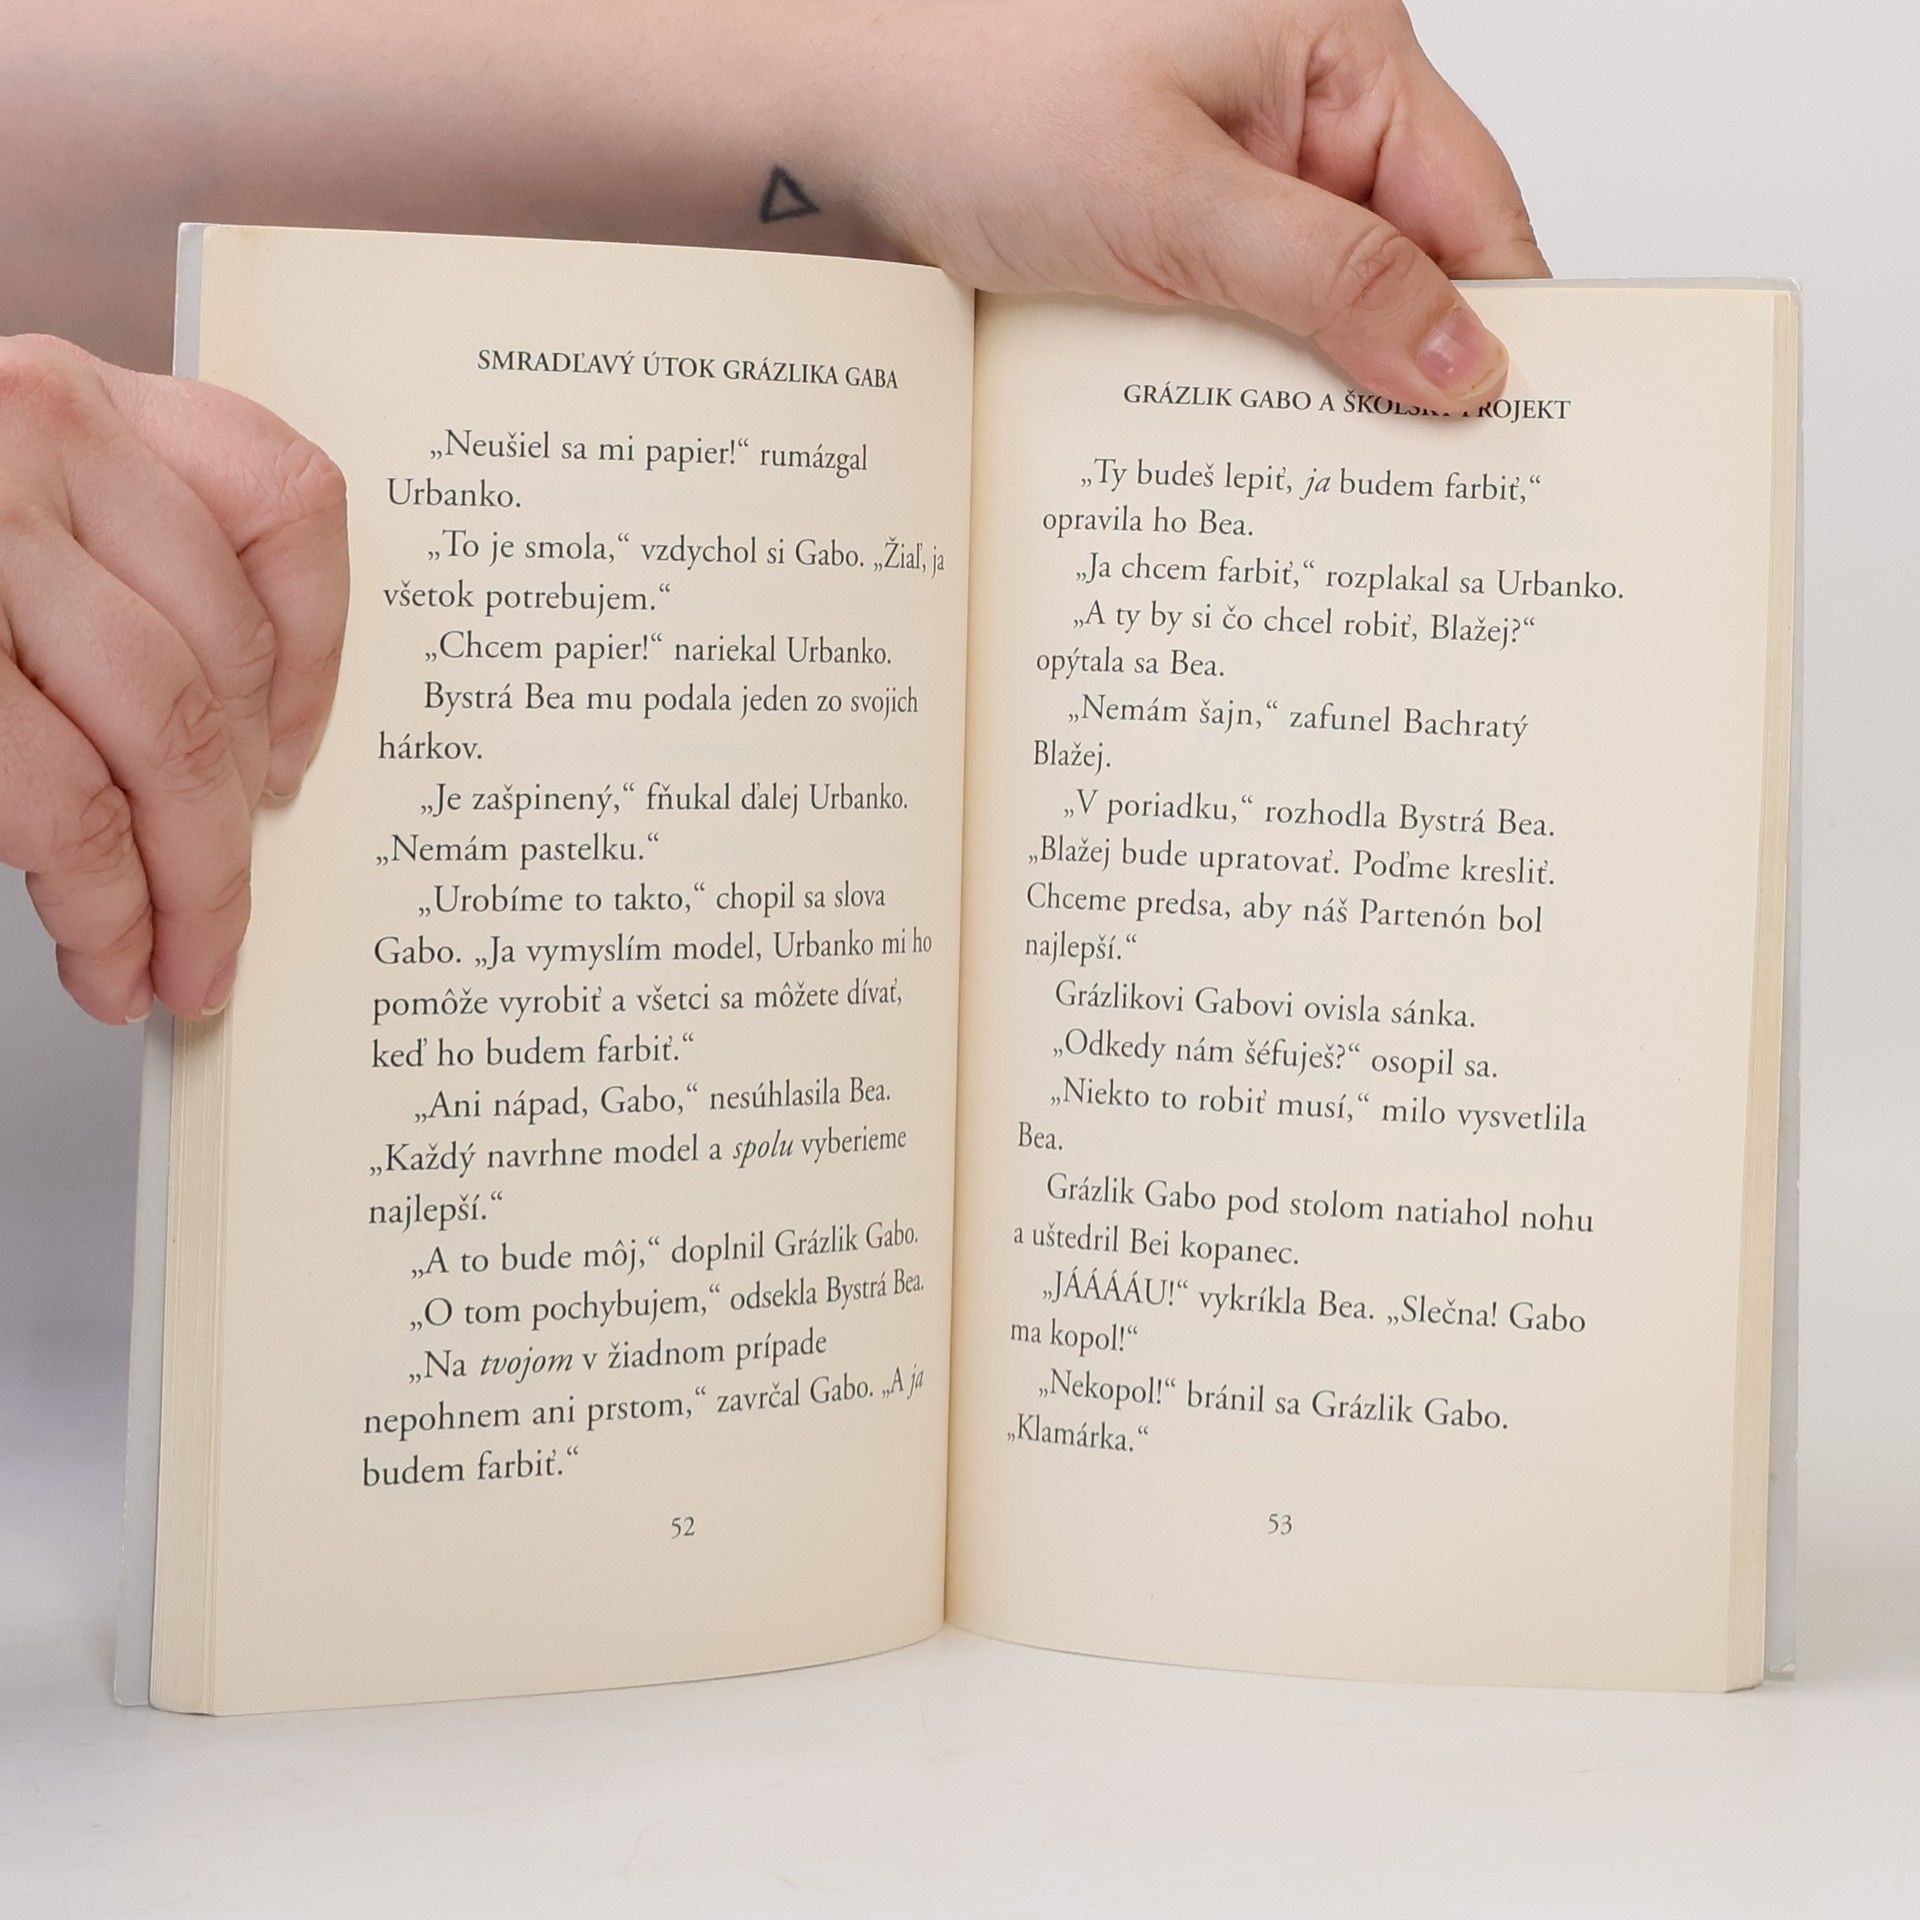 SMRADĽAVÝ ÚTOK GRÁZLIKA GABA
„Neušiel sa mi papier!“ rumázgal
Urbanko.
„To je smola,“ vzdychol si Gabo. „Žiaľ, ja
všetok potrebujem.“
„Chcem papier!“ nariekal Urbanko.
Bystrá Bea mu podala jeden zo svojich
hárkov.
„Je zašpinený,“ fňukal ďalej Urbanko.
„Nemám pastelku.“
„Urobíme to takto,“ chopil sa slova
Gabo. „Ja vymyslím model, Urbanko mi ho
pomôže vyrobiť a všetci sa môžete dívať,
keď ho budem farbiť.“
„Ani nápad, Gabo,“ nesúhlasila Bea.
„Každý navrhne model a spolu vyberieme
najlepší.“
„A to bude môj,“ doplnil Grázlik Gabo.
„O tom pochybujem,“ odsekla Bystrá Bea.
„Na tvojom v žiadnom prípade
nepohnem ani prstom,“ zavrčal Gabo. „A ja
budem farbiť.“
52
GRÁZLIK GABO A ŠKOLSKÝ PROJEKT
„Ty budeš lepiť, ja budem farbiť,“
opravila ho Bea.
„Ja chcem farbiť,“ rozplakal sa Urbanko.
„A ty by si čo chcel robiť, Blažej?“
opýtala sa Bea.
„Nemám šajn,“ zafunel Bachratý
Blažej.
„V poriadku,“ rozhodla Bystrá Bea.
„Blažej bude upratovať. Poďme kresliť.
Chceme predsa, aby náš Partenón bol
najlepší.“
Grázlikovi Gabovi ovisla sánka.
„Odkedy nám šéfuješ?“ osopil sa.
„Niekto to robiť musí,“ milo vysvetlila
Bea.
Grázlik Gabo pod stolom natiahol nohu
a uštedril Bei kopanec.
„JÁÁÁÁU!“ vykríkla Bea. „Slečna! Gabo
ma kopol!“
„Nekopol!“ bránil sa Grázlik Gabo.
„Klamárka.“
53